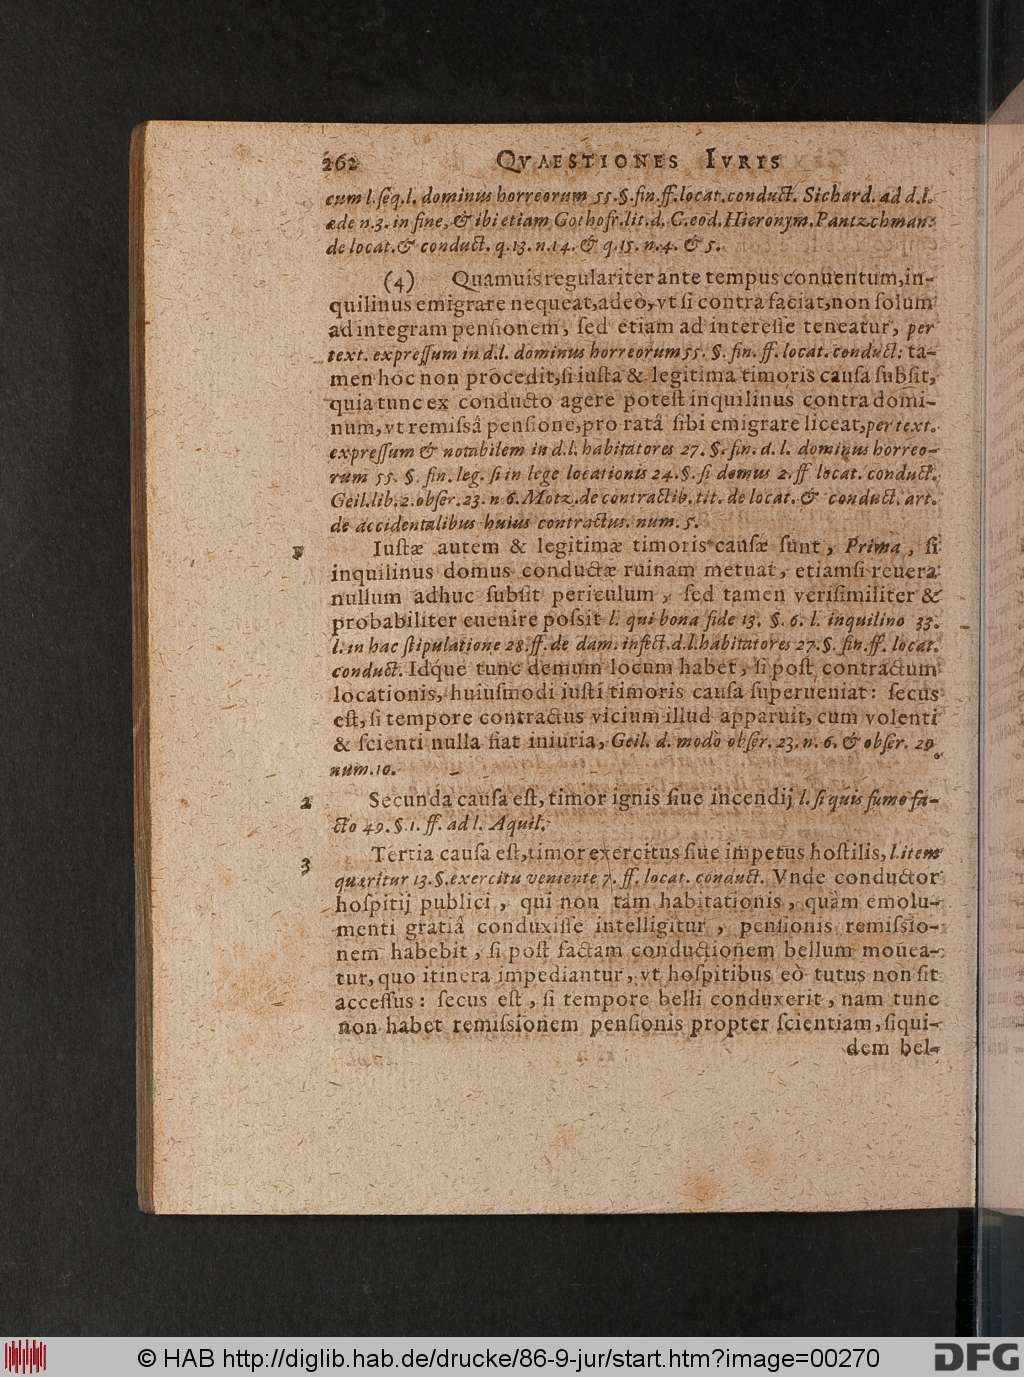 262 QVAESTIONES IVRIS
cum l. ſeq. l. dominus horreorum 55. §. fin. ff. locat. conduct. Sichard. ad d. l.
æde n. 3. in fine, & ibi etiam Gothofr. lit. d. C. eod. Hieronym. Pantzchman.
de locat. & conduct. q. 13. n. 14. & q. 15. n. 4. & 5.
(4) Quamuis regulariter ante tempus conuentum, in-
quilinus emigrare nequeat, adeò, vt ſi contra faciat, non ſolum
ad integram penſionem, ſed etiam ad intereſſe teneatur, per
text. expreſſum in d. l. dominus horreorum 55. §. fin. ff. locat. conduct: ta-
men hoc non procedit, ſi iuſta & legitima timoris cauſa ſubſit,
quia tunc ex conducto agere poteſt inquilinus contra domi-
num, vt remiſsâ penſione, pro ratâ ſibi emigrare liceat, per text.
expreſſum & notabilem in d. l. habitatores 27. §. fin. d. l. dominus horreo-
rum 55. §. fin. leg. ſi in lege locationis 24. §. ſi domus 2. ff locat. conduct.
Geil. lib. 2. obſer. 23. n. 6. Motz. de contractib. tit. de locat. & conduct. art.
de accidentalibus huius contractus. num. 5.
1 Iuſtæ autem & legitimæ timoris cauſæ ſunt, Prima, ſi
inquilinus domus conductæ ruinam metuat, etiamſi reuera
nullum adhuc ſubſit periculum, ſed tamen veriſimiliter &
probabiliter euenire poſsit l. qui bona fide 13. §. 6. l. inquilino 33.
l. in hac ſtipulatione 28. ff. de dam. infect. d. l. habitatores 27. §. fin. ff. locat.
conduct. Idque tunc demum locum habet, ſi poſt contractum
locationis, huiuſmodi iuſti timoris cauſa ſuperueniat: ſecus
eſt, ſi tempore contractus vicium illud apparuit, cum volenti
& ſcienti nulla fiat iniuria, Geil. d. modo obſer. 23. n. 6. & obſer. 29.
num. 10.
2 Secunda cauſa eſt, timor ignis ſiue incendij l. ſi quis fumo fa-
cto 49. §. 1. ff. ad l. Aquil.
3 Tertia cauſa eſt, timor exercitus ſiue impetus hoſtilis, l. item
quæritur 13. §. exercitu veniente 7. ff. locat. conduct. Vnde conductor
hoſpitij publici, qui non tàm habitationis, quàm emolu-
menti gratiâ conduxiſſe intelligitur, penſionis remiſsio-
nem habebit, ſi poſt factam conductionem bellum mouea-
tur, quo itinera impediantur, vt hoſpitibus eò tutus non ſit
acceſſus: ſecus eſt, ſi tempore belli conduxerit, nam tunc
non habet remiſsionem penſionis propter ſcientiam, ſiqui-
dem bel-
© HAB http://diglib.hab.de/drucke/86-9-jur/start.htm?image=00270
DFG